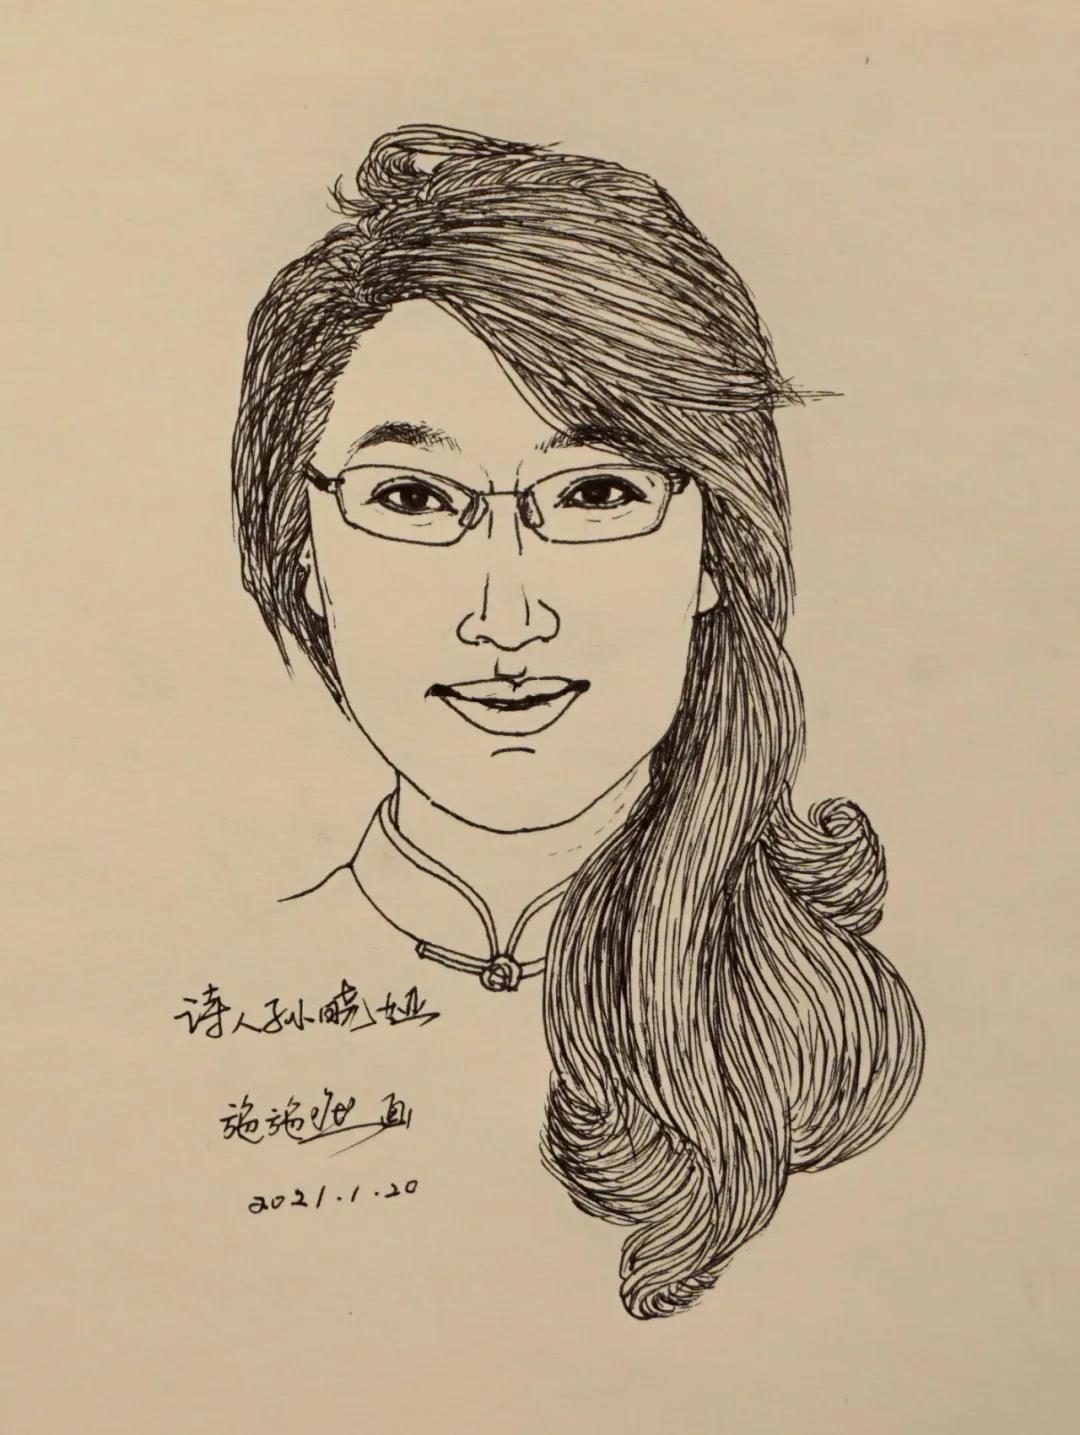 诗人孙晓娅
施施然画
2021.1.20